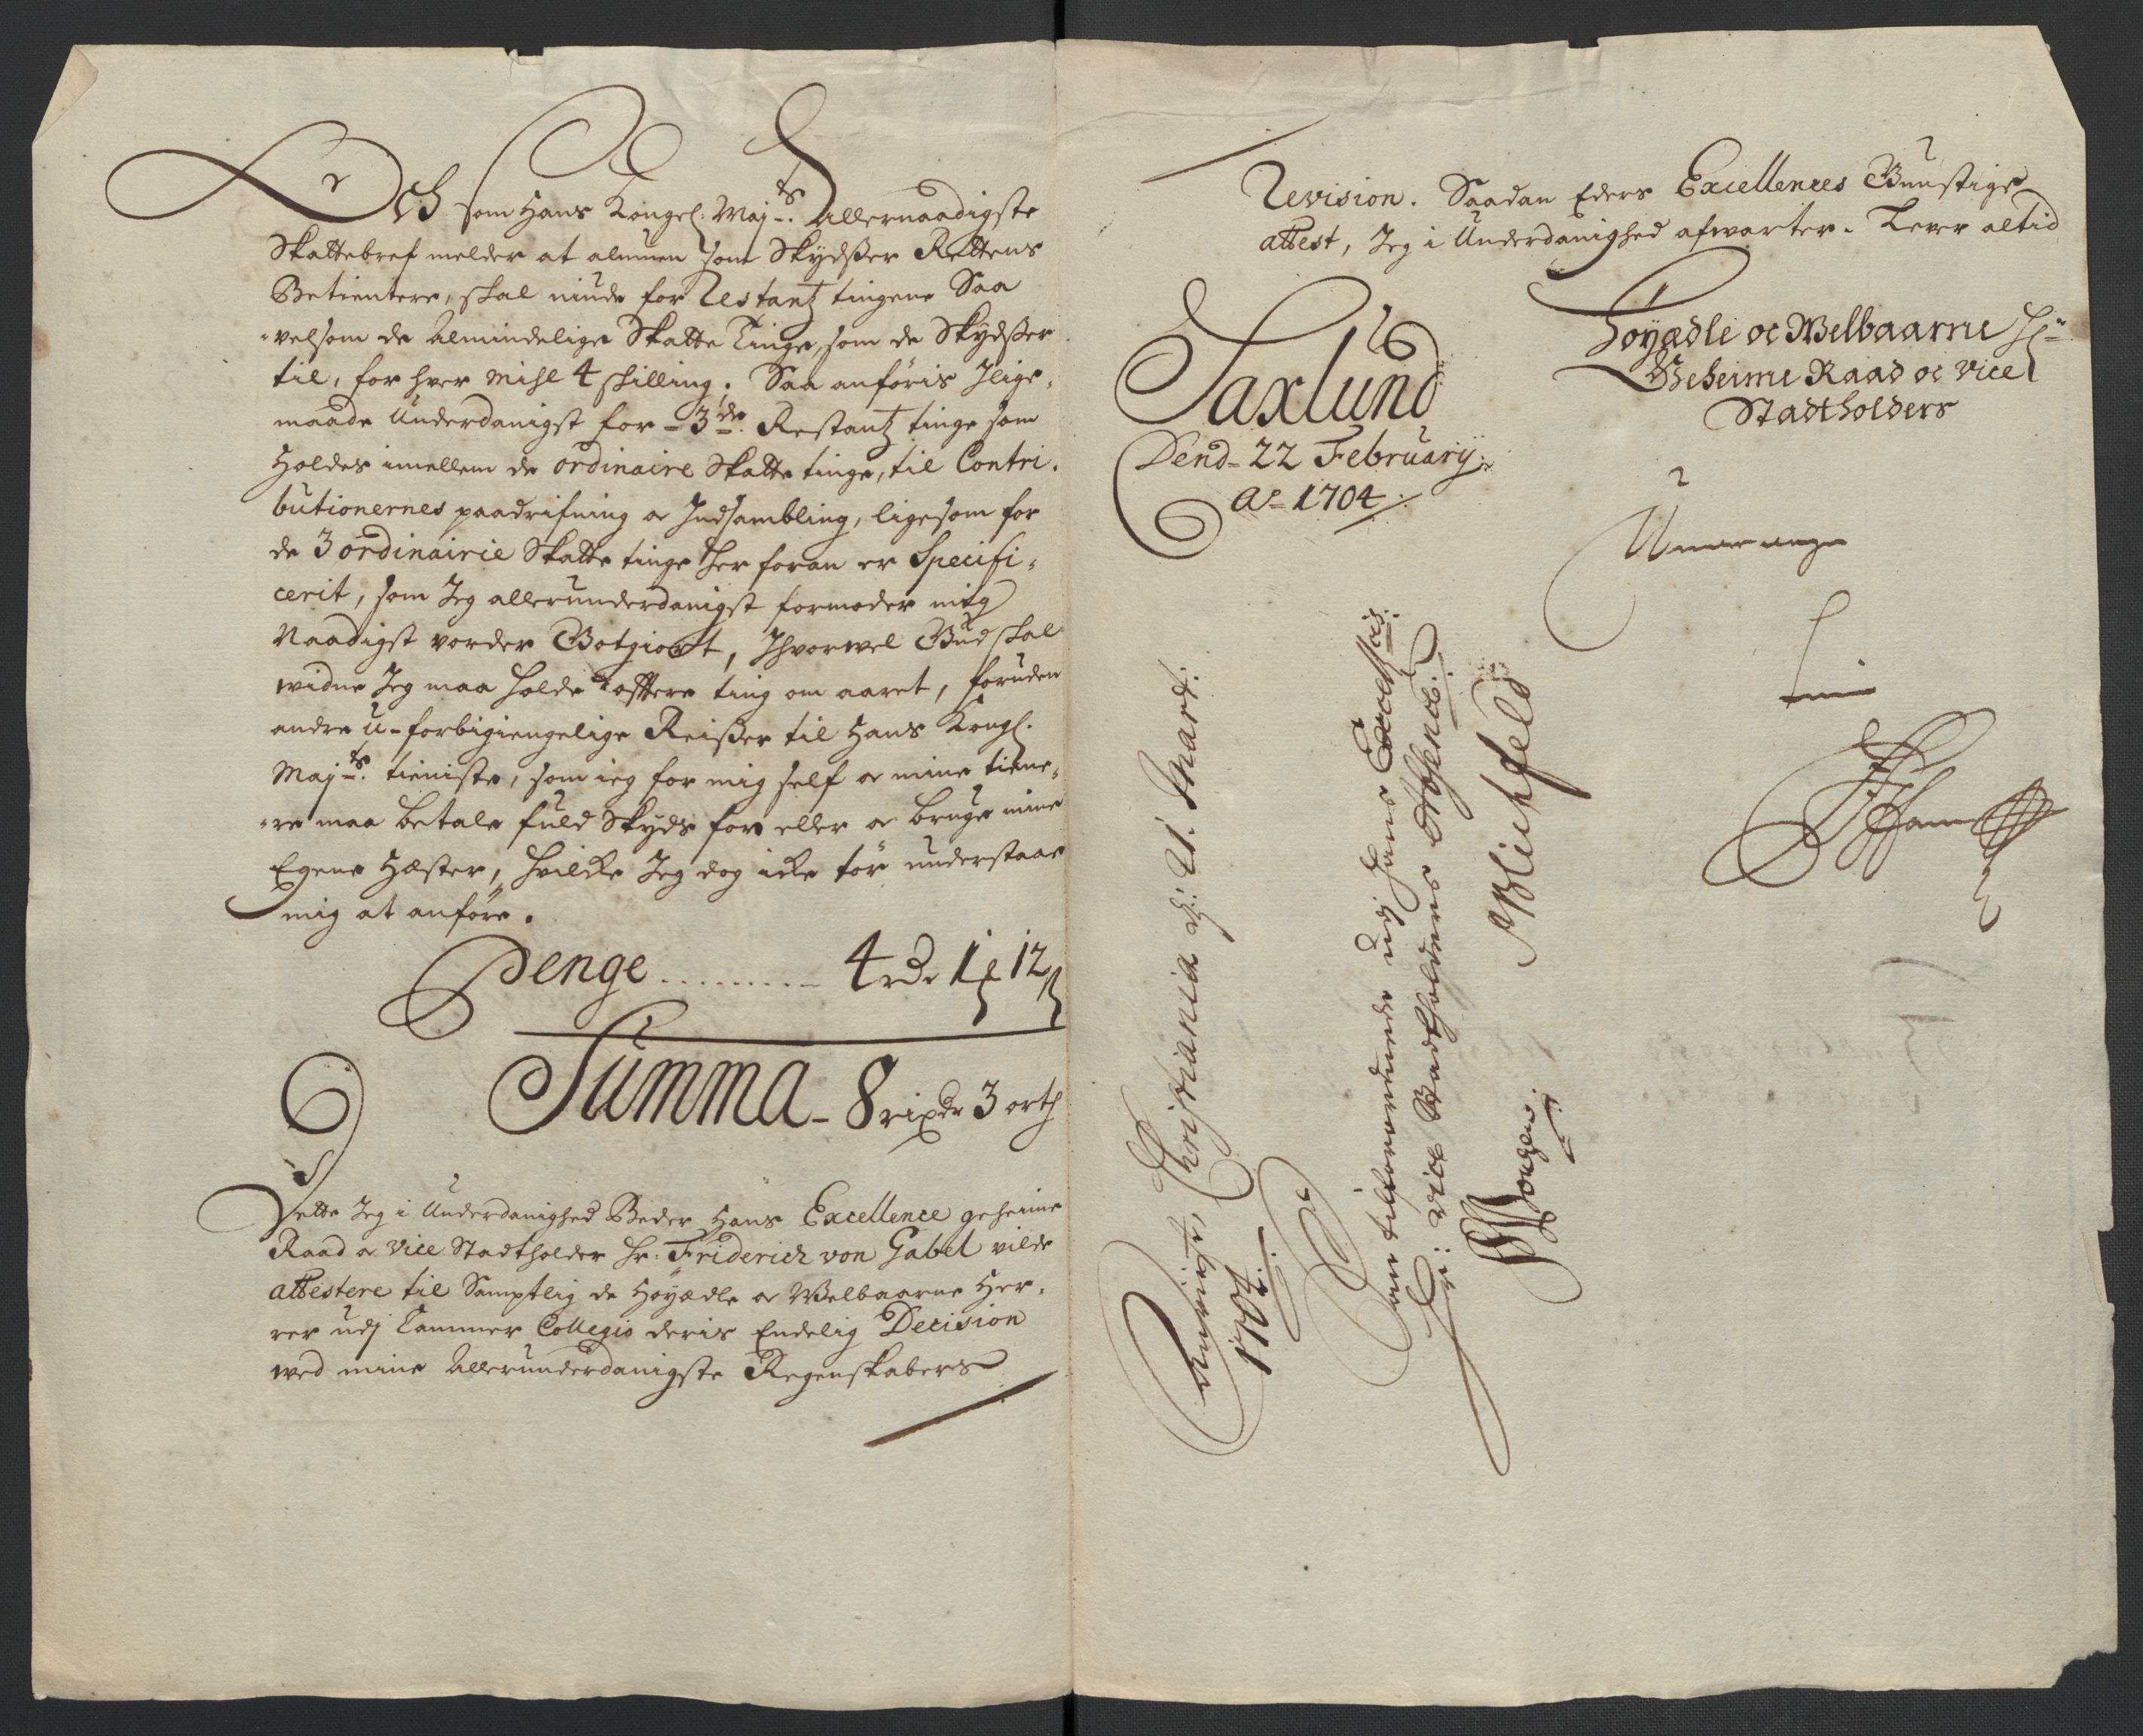 Och som Hans Kongel: Maj.ts Allernaadigste
Skattebref melder at almuen som Skydsser Rettens
Betientere, skal niude for Restantz tingene Saa
velsom de Almindelige Skatte Tinge, som de Skydsser
til, for hver Mihl 4 skilling. Saa anføris Ilige-
maade Underdanigst for 3de Restantz tinge som
Holdes imellem de ordinaire Skatte tinge, til Contri-
butionernes paadrifning oc Indsambling, ligesom for
de 3 ordinairie Skatte tinge her foran er Specifi-
cerit, som Jeg allerunderdanigst formoder mig
Naadigst vorder Gotgiort, Ihvorvel Gud skal
widne Jeg maa holde oftere ting om aaret, foruden
andre u-forbigiengelige Reisser til Hans Kongl.
Maj.ts tieniste, som ieg for mig self oc mine tiene-
re maa betale fuld Skyds for eller oc bruge mine
Egene Hæster, hvilcke Jeg dog icke tør understaae
mig at anføre.
Penge ......... 4 rdr 1 12 ß
Summa - 8 rixdr 3 orth
Dette Jeg i Underdanighed Beder Hans Excellence geheime
Raad oc Vice Stadtholder Hr: Friderich von Gabel vilde
attestere til Samptlig de Høyædle oc Welbaarne Her-
rer udj Cammer Collegio deris Endelig Decision
wed mine Allerunderdanigste Regenskabers
Revision. Saadan Eders Excellences Gunstige
attest, Jeg i Underdanighed afwarter. Lever altid
Høyædle oc Welbaarne Hr
Geheime Raad oc Vice
Stadtholders
Saxlund
Dend 22 February
Ao 1704
Christiania d: 21. Mart:
1704.
udj Hans Excell:
Hr: Vice Stadtholders